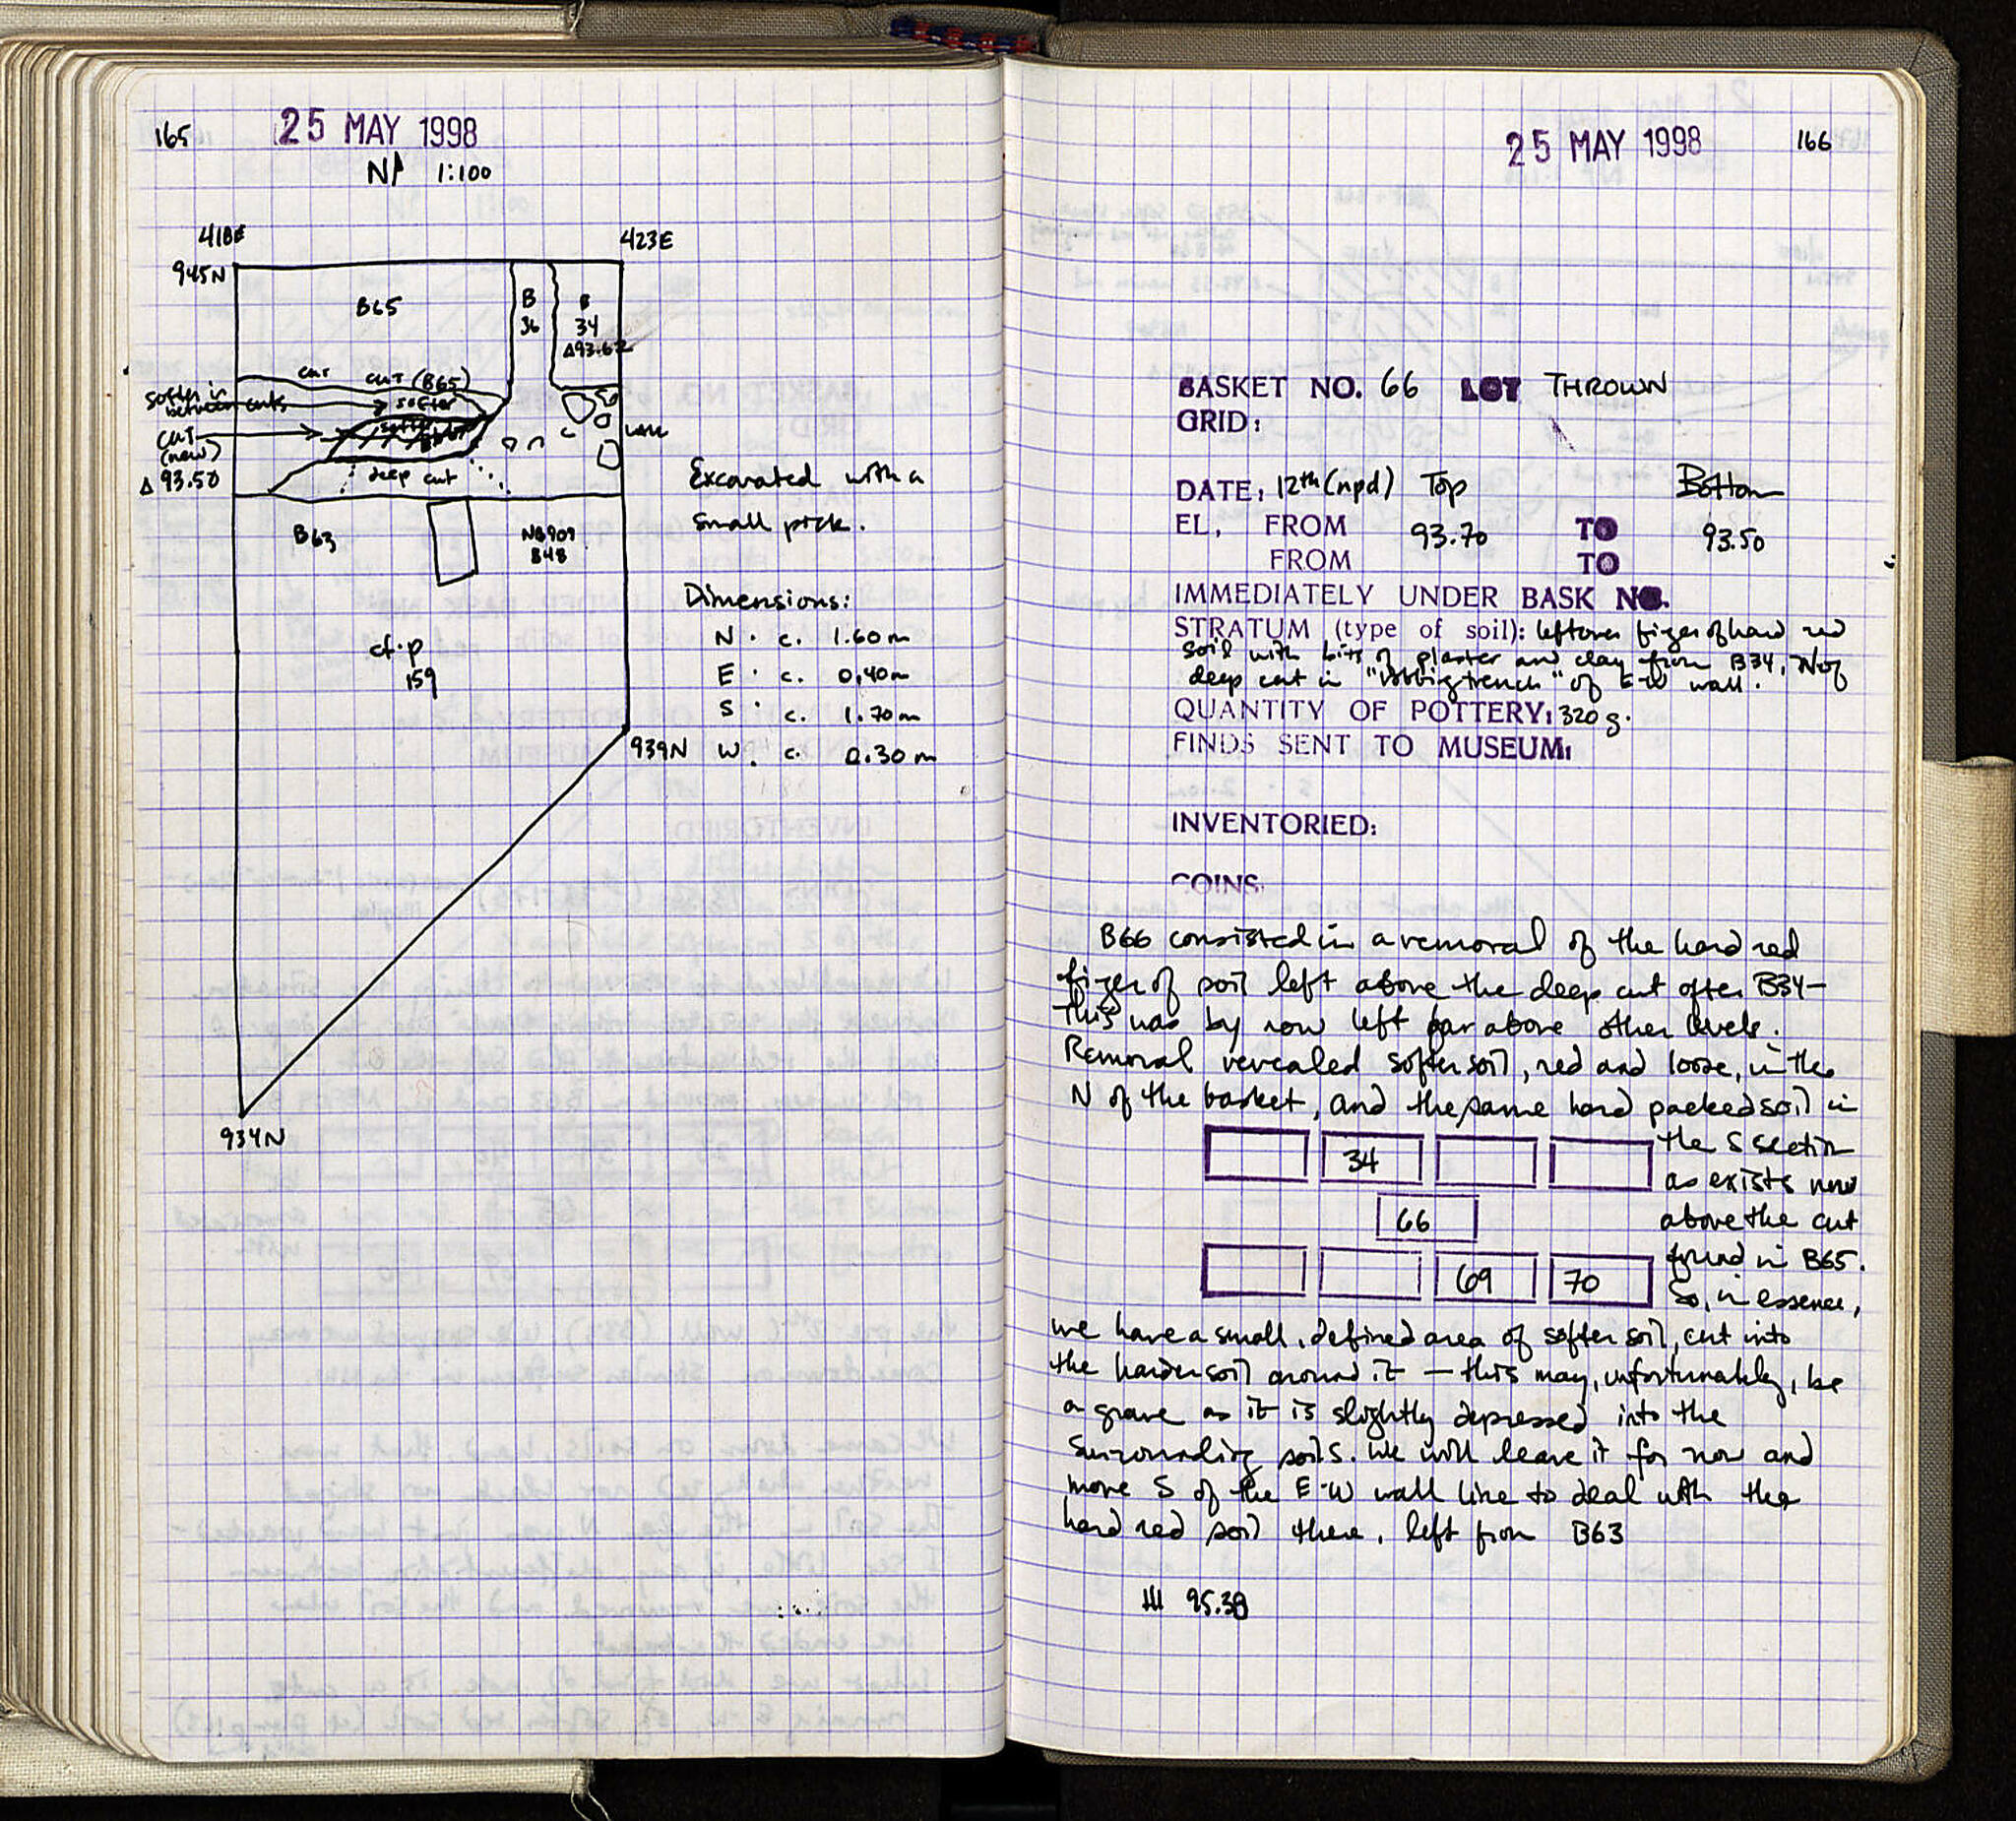 165
25 MAY 1998
N 1:100
418E
423E
945N
B65
B
36
B
34
Δ93.62
cut cut (B65)
softer in
between cuts
softer
cut
(new)
Δ 93.50
wall
deep cut
B63
NB909
B48
cf. p
159
939N
934N
Excavated with a
small pick.
Dimensions:
N. c. 1.60 m
E. c. 0.40 m
S. c. 1.70 m
W. c. 0.30 m
25 MAY 1998
166
BASKET NO. 66 LOT THROWN
GRID:
DATE: 12th (npd) Top Bottom
EL, FROM 93.70 TO 93.50
FROM TO
IMMEDIATELY UNDER BASK NO.
STRATUM (type of soil): leftover finger of hard red
soil with bits of plaster and clay from B34, N of
deep cut in "robbing trench" of E-W wall.
QUANTITY OF POTTERY: 320 g.
FINDS SENT TO MUSEUM:
INVENTORIED:
COINS:
B66 consisted in a removal of the hard red
finger of soil left above the deep cut after B34 –
this was by now left far above other levels.
Removal revealed softer soil, red and loose, in the
N of the basket, and the same hard packed soil in
the S section
as exists now
above the cut
found in B65.
So, in essence,
34
66
69 70
we have a small, defined area of softer soil, cut into
the harder soil around it – this may, unfortunately, be
a grave as it is slightly depressed into the
surrounding soils. We will leave it for now and
move S of the E-W wall line to deal with the
hard red soil there, left from B63
95.38